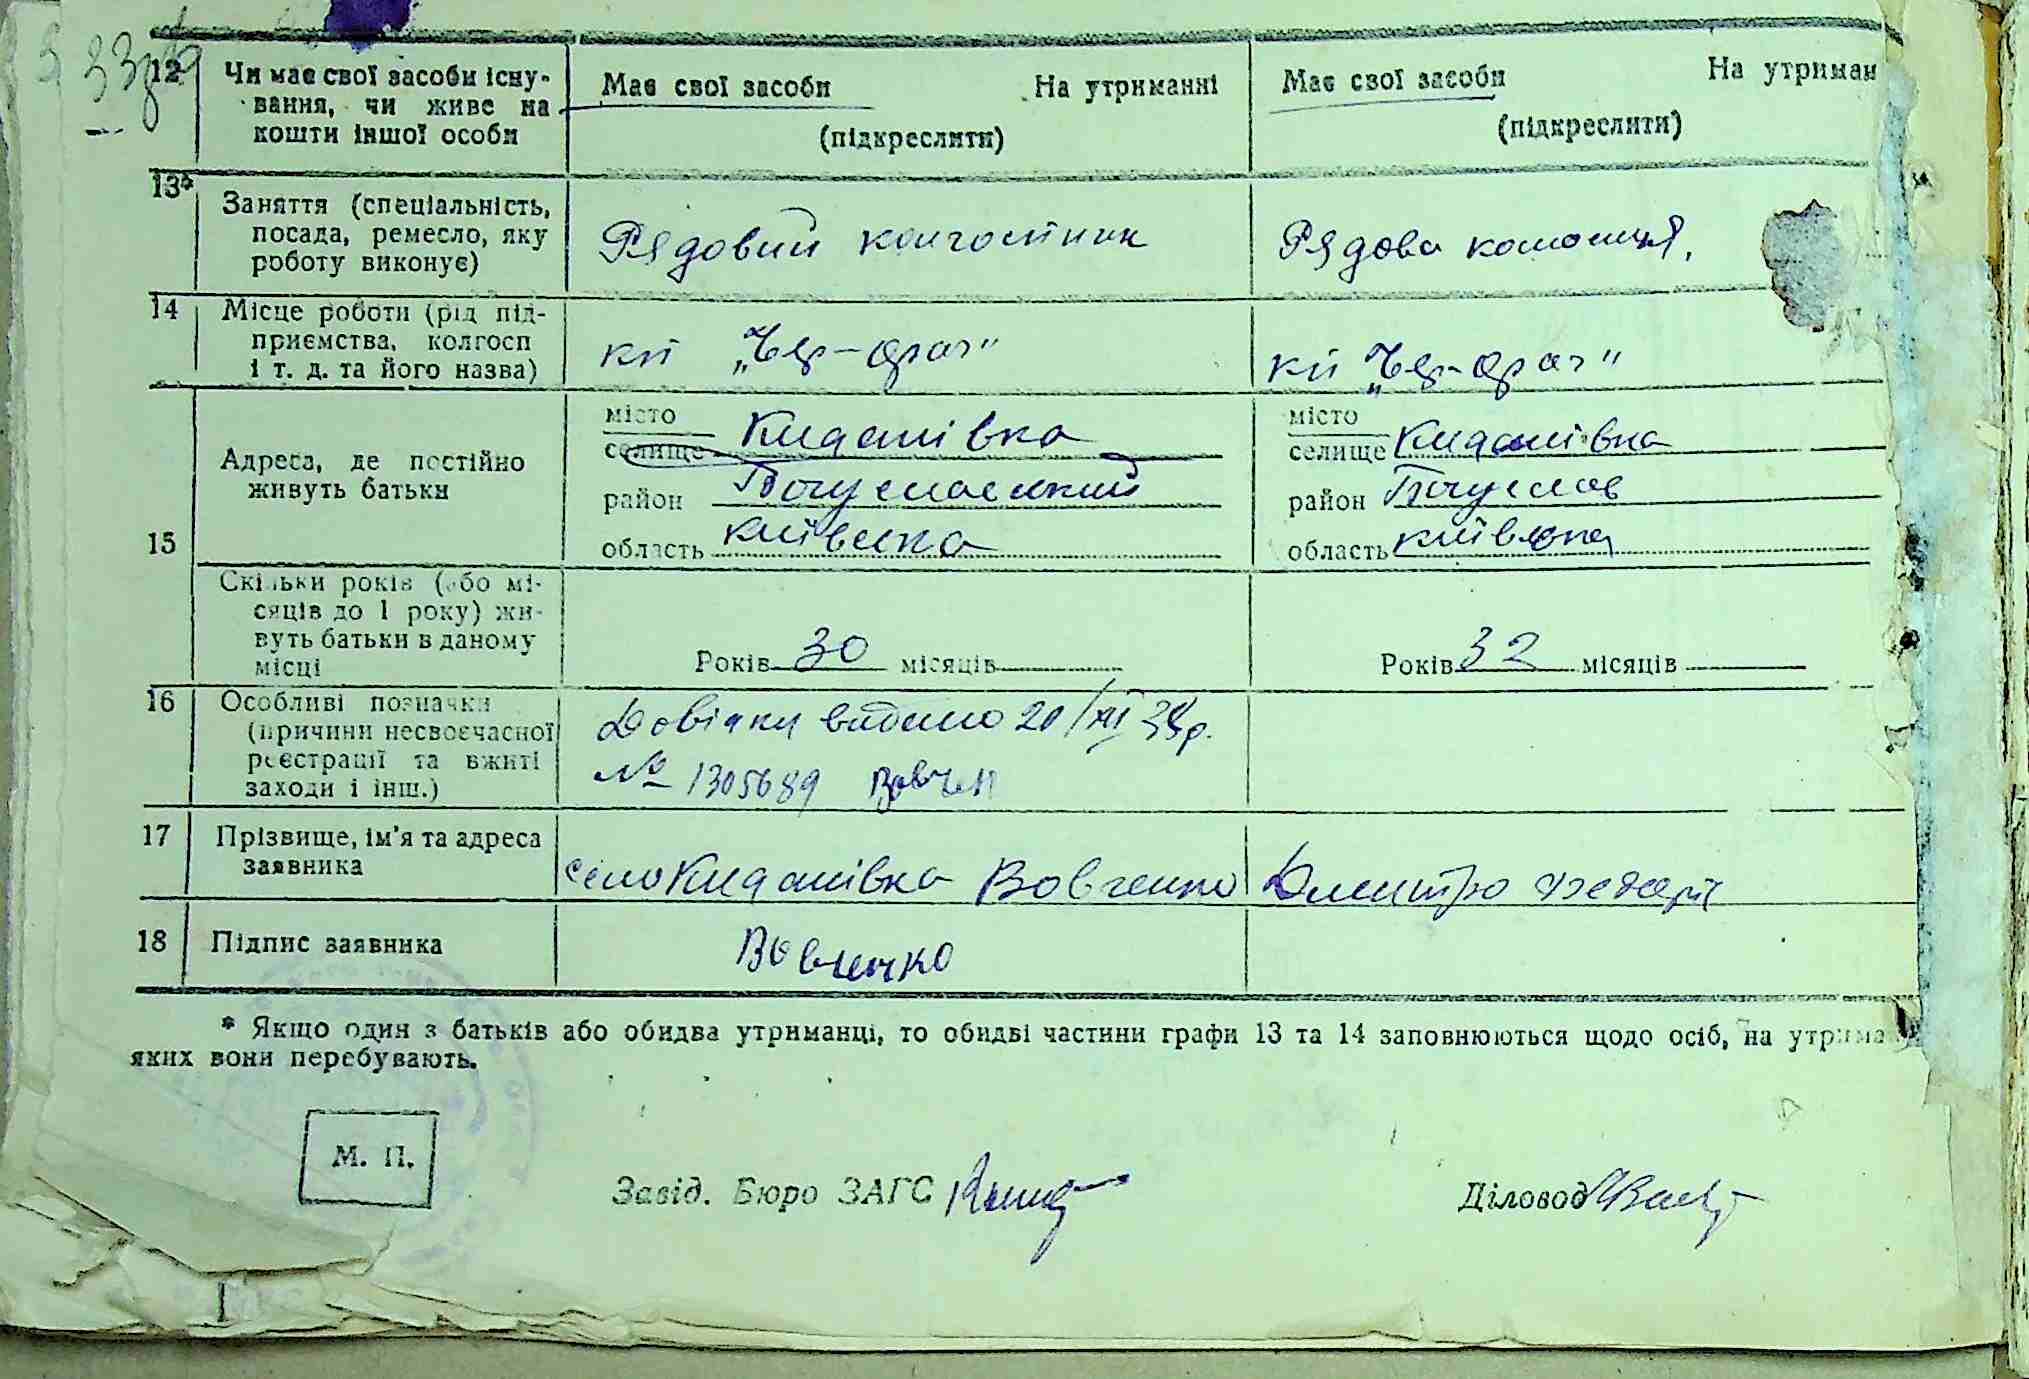 12 Чи має свої засоби існу-
вання, чи живе на
кошти іншої особи
Має свої засоби На утриманні
(підкреслити)
Має свої засоби На утриман
(підкреслити)
13* Заняття (спеціальність,
посада, ремесло, яку
роботу виконує)
Рядовий колгоспник
Рядова
14 Місце роботи (рід під-
приємства, колгосп
і т. д. та його назва)
кп
кп
15 Адреса, де постійно
живуть батьки
місто
селище Кидашівка
район Богуславський
область київська
місто
селище Кидашівка
район Богуслав
область київська
Скільки років (або мі-
сяців до 1 року) жи-
вуть батьки в даному
місці
Років 30 місяців
Років 32 місяців
16 Особливі позначки
(причини несвоєчасної
реєстрації та вжиті
заходи і інш.)
Довідку видано 20/XII
№ 1305689
17 Прізвище, ім'я та адреса
заявника
село Кидашівка Вовченко Дмитро
18 Підпис заявника
Вовченко
* Якщо один з батьків або обидва утриманці, то обидві частини графи 13 та 14 заповнюються щодо осіб, на утрима
яких вони перебувають.
М. П.
Завід. Бюро ЗАГС
Діловод